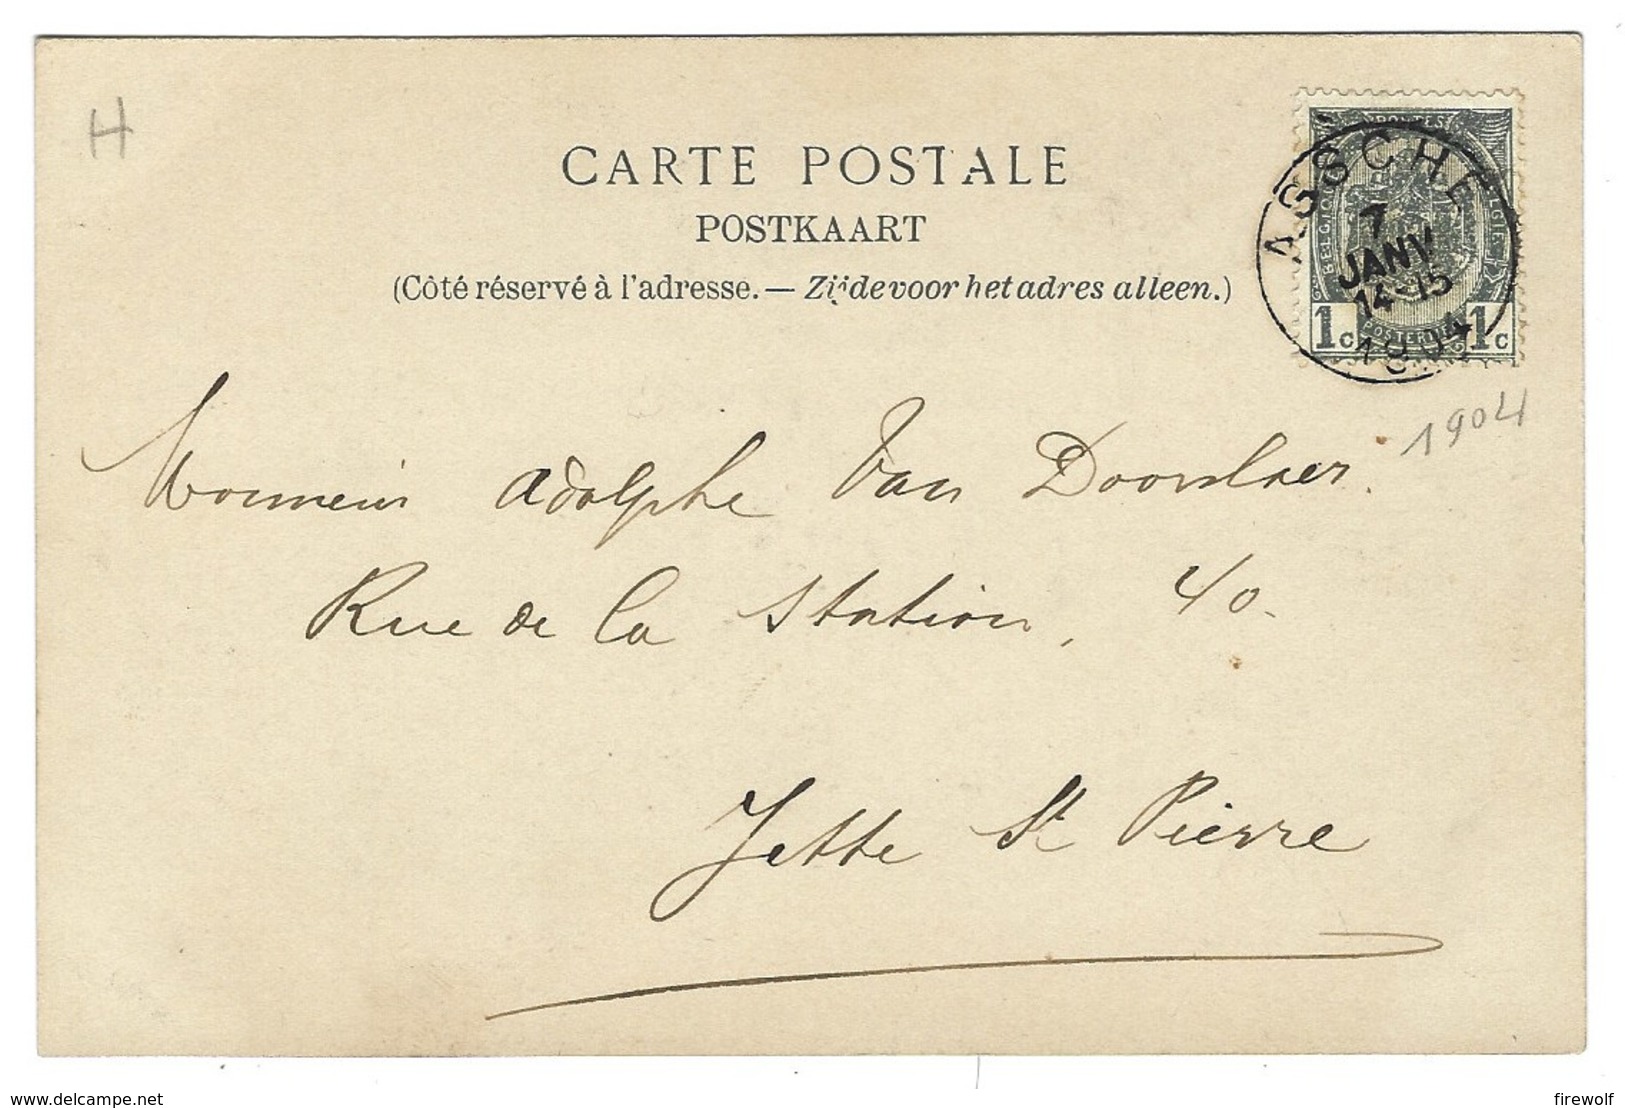 H
CARTE POSTALE
POSTKAART
(Côté réservé à l'adresse. — Zijde voor het adres alleen.)
ASSCHE
7
JANV
14-15
1904
1c 1c
1904
Monsieur Adolphe Van Doorslaer.
Rue de la Station, 40.
Jette St Pierre
www.delcampe.net
firewolf